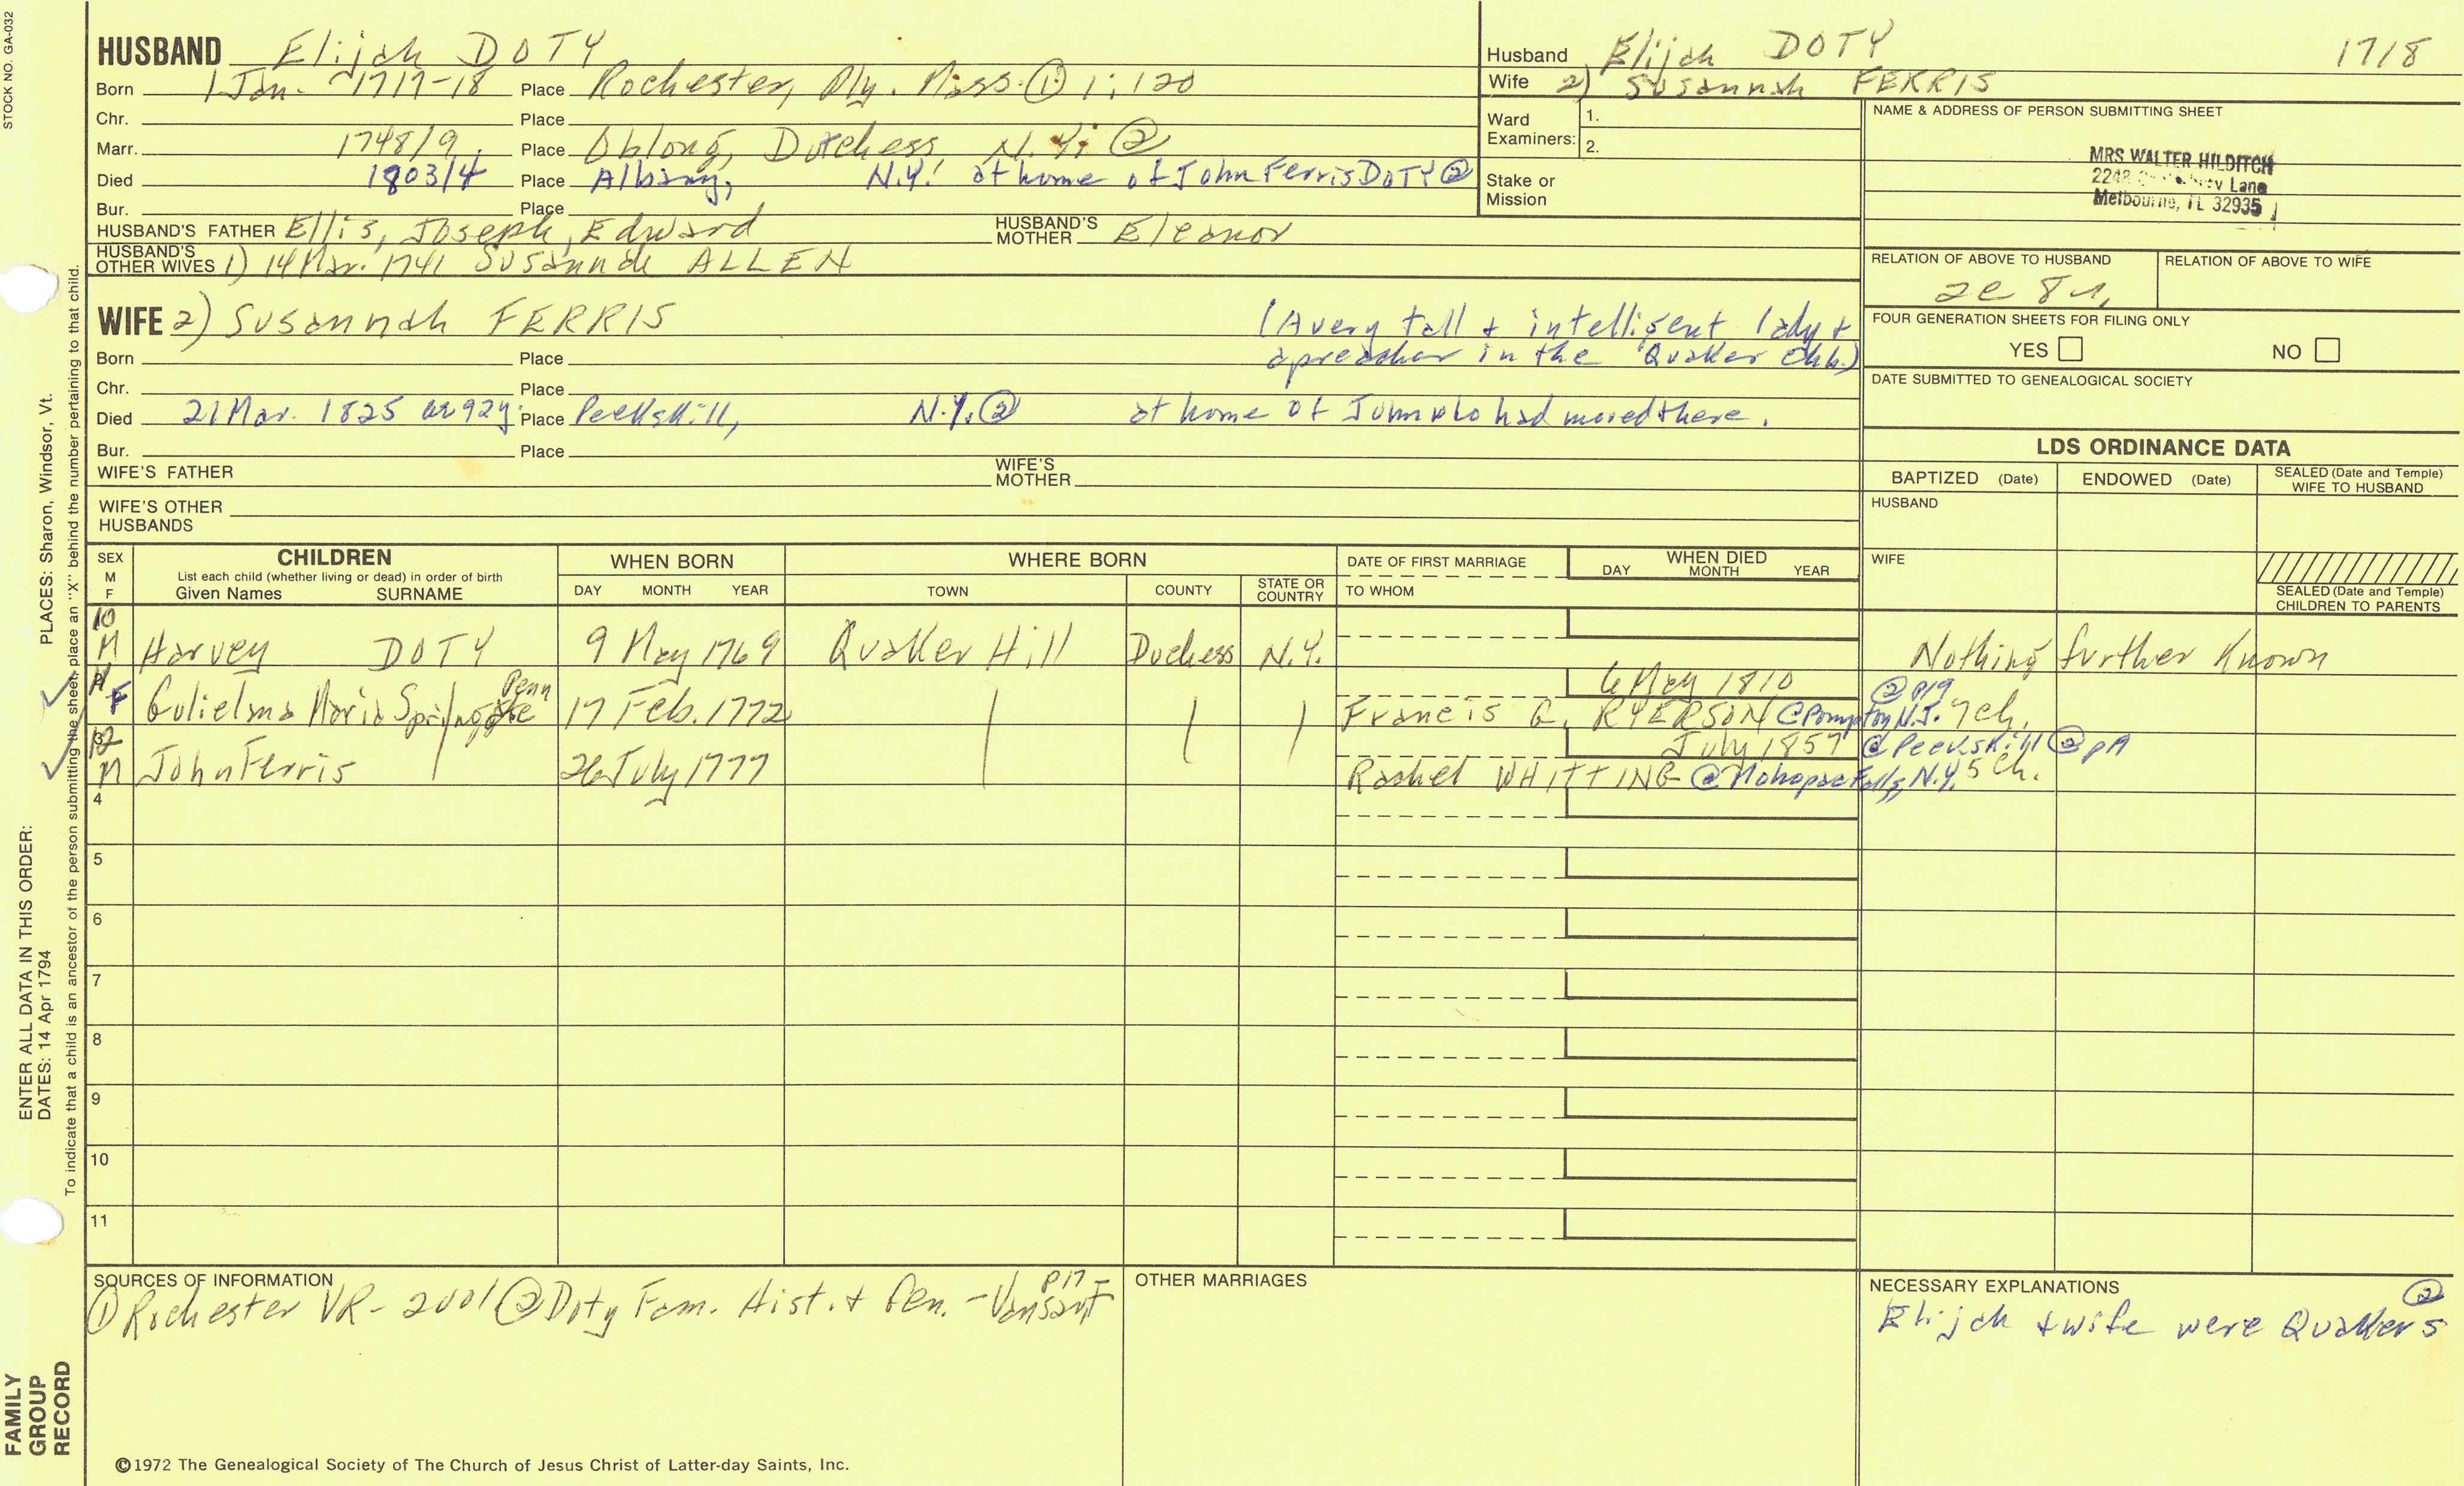 STOCK NO. GA-032
HUSBAND Elijah DOTY
Born 1 Jan. 1717-18 Place Rochester, Ply. Mass. ① 1:120
Chr. Place
Marr. 1748/9 Place Oblong, Dutchess N.Y. ②
Died 1803/4 Place Albany, N.Y. at home of John Ferris DOTY ②
Bur. Place
HUSBAND'S FATHER Ellis, Joseph, Edward HUSBAND'S MOTHER Eleanor
HUSBAND'S OTHER WIVES 1) 14 Mar. 1741 Susannah ALLEN
Husband Elijah DOTY 1718
Wife 2) Susannah FERRIS
Ward Examiners: 1.
2.
Stake or Mission
NAME & ADDRESS OF PERSON SUBMITTING SHEET
MRS WALTER HILDITCH
2248 Lane
Melbourne, FL 32935
RELATION OF ABOVE TO HUSBAND
RELATION OF ABOVE TO WIFE
FOUR GENERATION SHEETS FOR FILING ONLY
YES NO
DATE SUBMITTED TO GENEALOGICAL SOCIETY
WIFE 2) Susannah FERRIS (A very tall + intelligent lady +
a preacher in the Quaker Chh.)
Born Place
Chr. Place
Died 21 Mar. 1825 ae 92y. Place Peekskill, N.Y. ② at home of John who had moved there.
Bur. Place
WIFE'S FATHER WIFE'S MOTHER
WIFE'S OTHER HUSBANDS
LDS ORDINANCE DATA
BAPTIZED (Date) ENDOWED (Date) SEALED (Date and Temple) WIFE TO HUSBAND
HUSBAND
WIFE
SEALED (Date and Temple) CHILDREN TO PARENTS
SEX M F
CHILDREN
List each child (whether living or dead) in order of birth
Given Names SURNAME
WHEN BORN
DAY MONTH YEAR
WHERE BORN
TOWN COUNTY STATE OR COUNTRY
DATE OF FIRST MARRIAGE
TO WHOM
WHEN DIED
DAY MONTH YEAR
10
M Harvey DOTY 9 May 1769 Quaker Hill Duchess N.Y. Nothing further Known
6 May 1810 ② p19
F Gulielma Maria Penn 17 Feb. 1772 Francis G. RYERSON @ Pompton N.J. 9 ch.
12 July 1857 @ Peekskill ②
M John Ferris 26 July 1777 Rachel WHITTING @ Mahopac Falls, N.Y. 5 ch.
4
5
6
7
8
9
10
11
SOURCES OF INFORMATION
① Rochester VR - 2001 ② Doty Fam. Hist. + Gen. - Vansant p17
OTHER MARRIAGES
NECESSARY EXPLANATIONS
②
Elijah + wife were Quakers
©1972 The Genealogical Society of The Church of Jesus Christ of Latter-day Saints, Inc.
FAMILY GROUP RECORD
ENTER ALL DATA IN THIS ORDER:
DATES: 14 Apr 1794
PLACES: Sharon, Windsor, Vt.
To indicate that a child is an ancestor of the person submitting the sheet, place an "X" behind the number pertaining to that child.